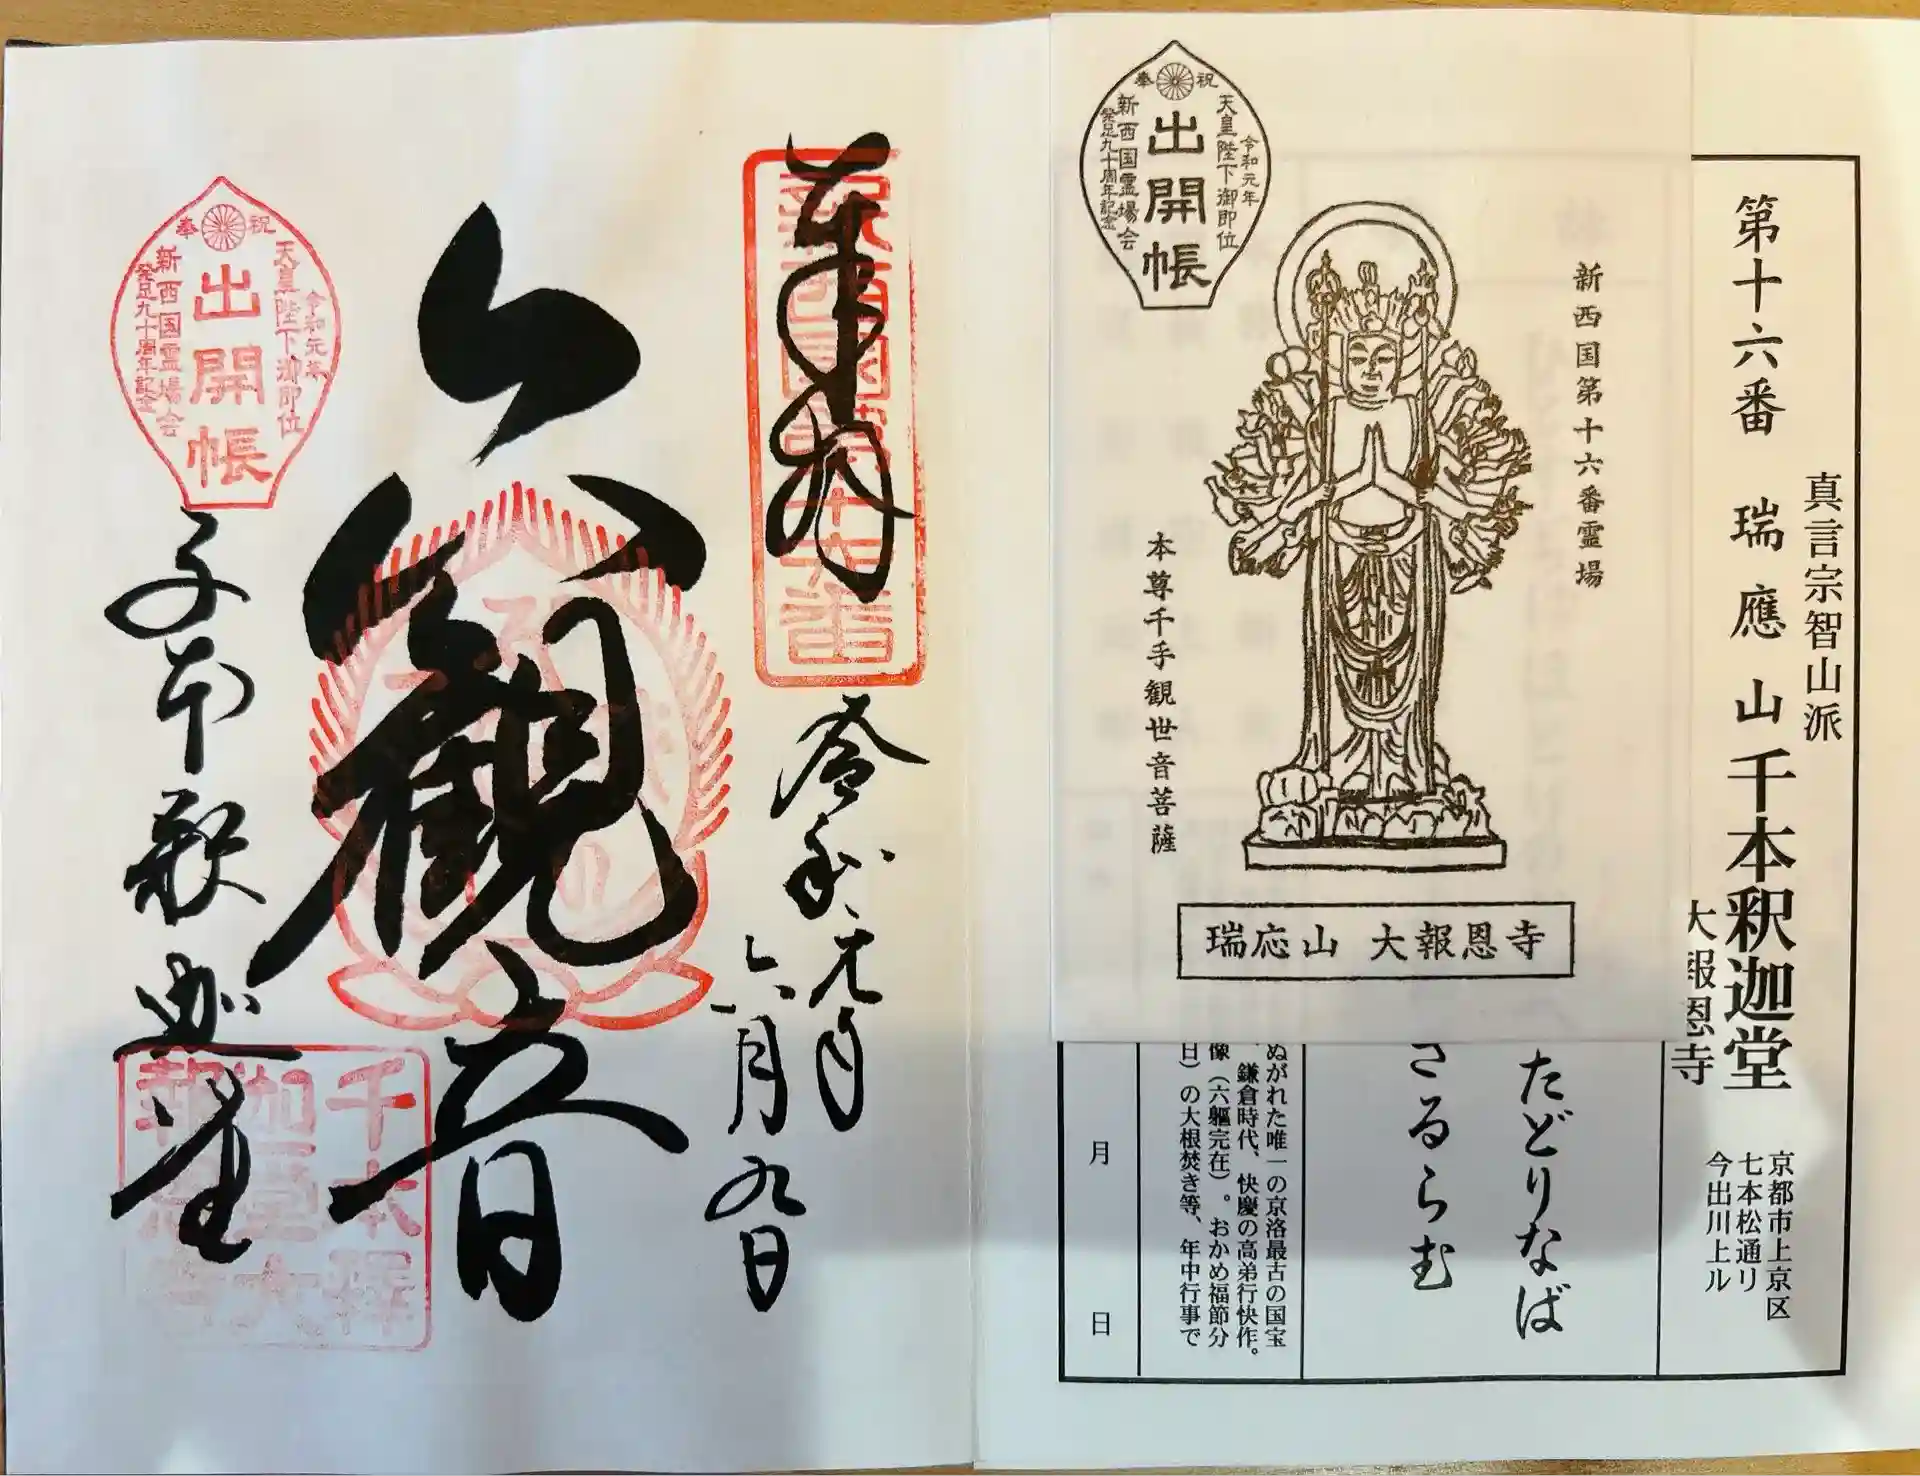 第十六番 瑞應山 千本釈迦堂
真言宗智山派
大報恩寺
京都市上京区
七本松通り
今出川上ル
たどりなば
さるらむ
ぬがれた唯一の京洛最古の国宝
、鎌倉時代、快慶の高弟行快作。
像(六軀完在)。おかめ福節分
日)の大根焚き等、年中行事で
月 日
新西国第十六番霊場
本尊千手観世音菩薩
瑞応山 大報恩寺
奉祝
令和元年
天皇陛下御即位
出開帳
新西国霊場会
発足九十周年記念
奉拝
新西国第十六番
令和元年
六月九日
六観音
千本釈迦堂
奉祝
令和元年
天皇陛下御即位
出開帳
新西国霊場会
発足九十周年記念